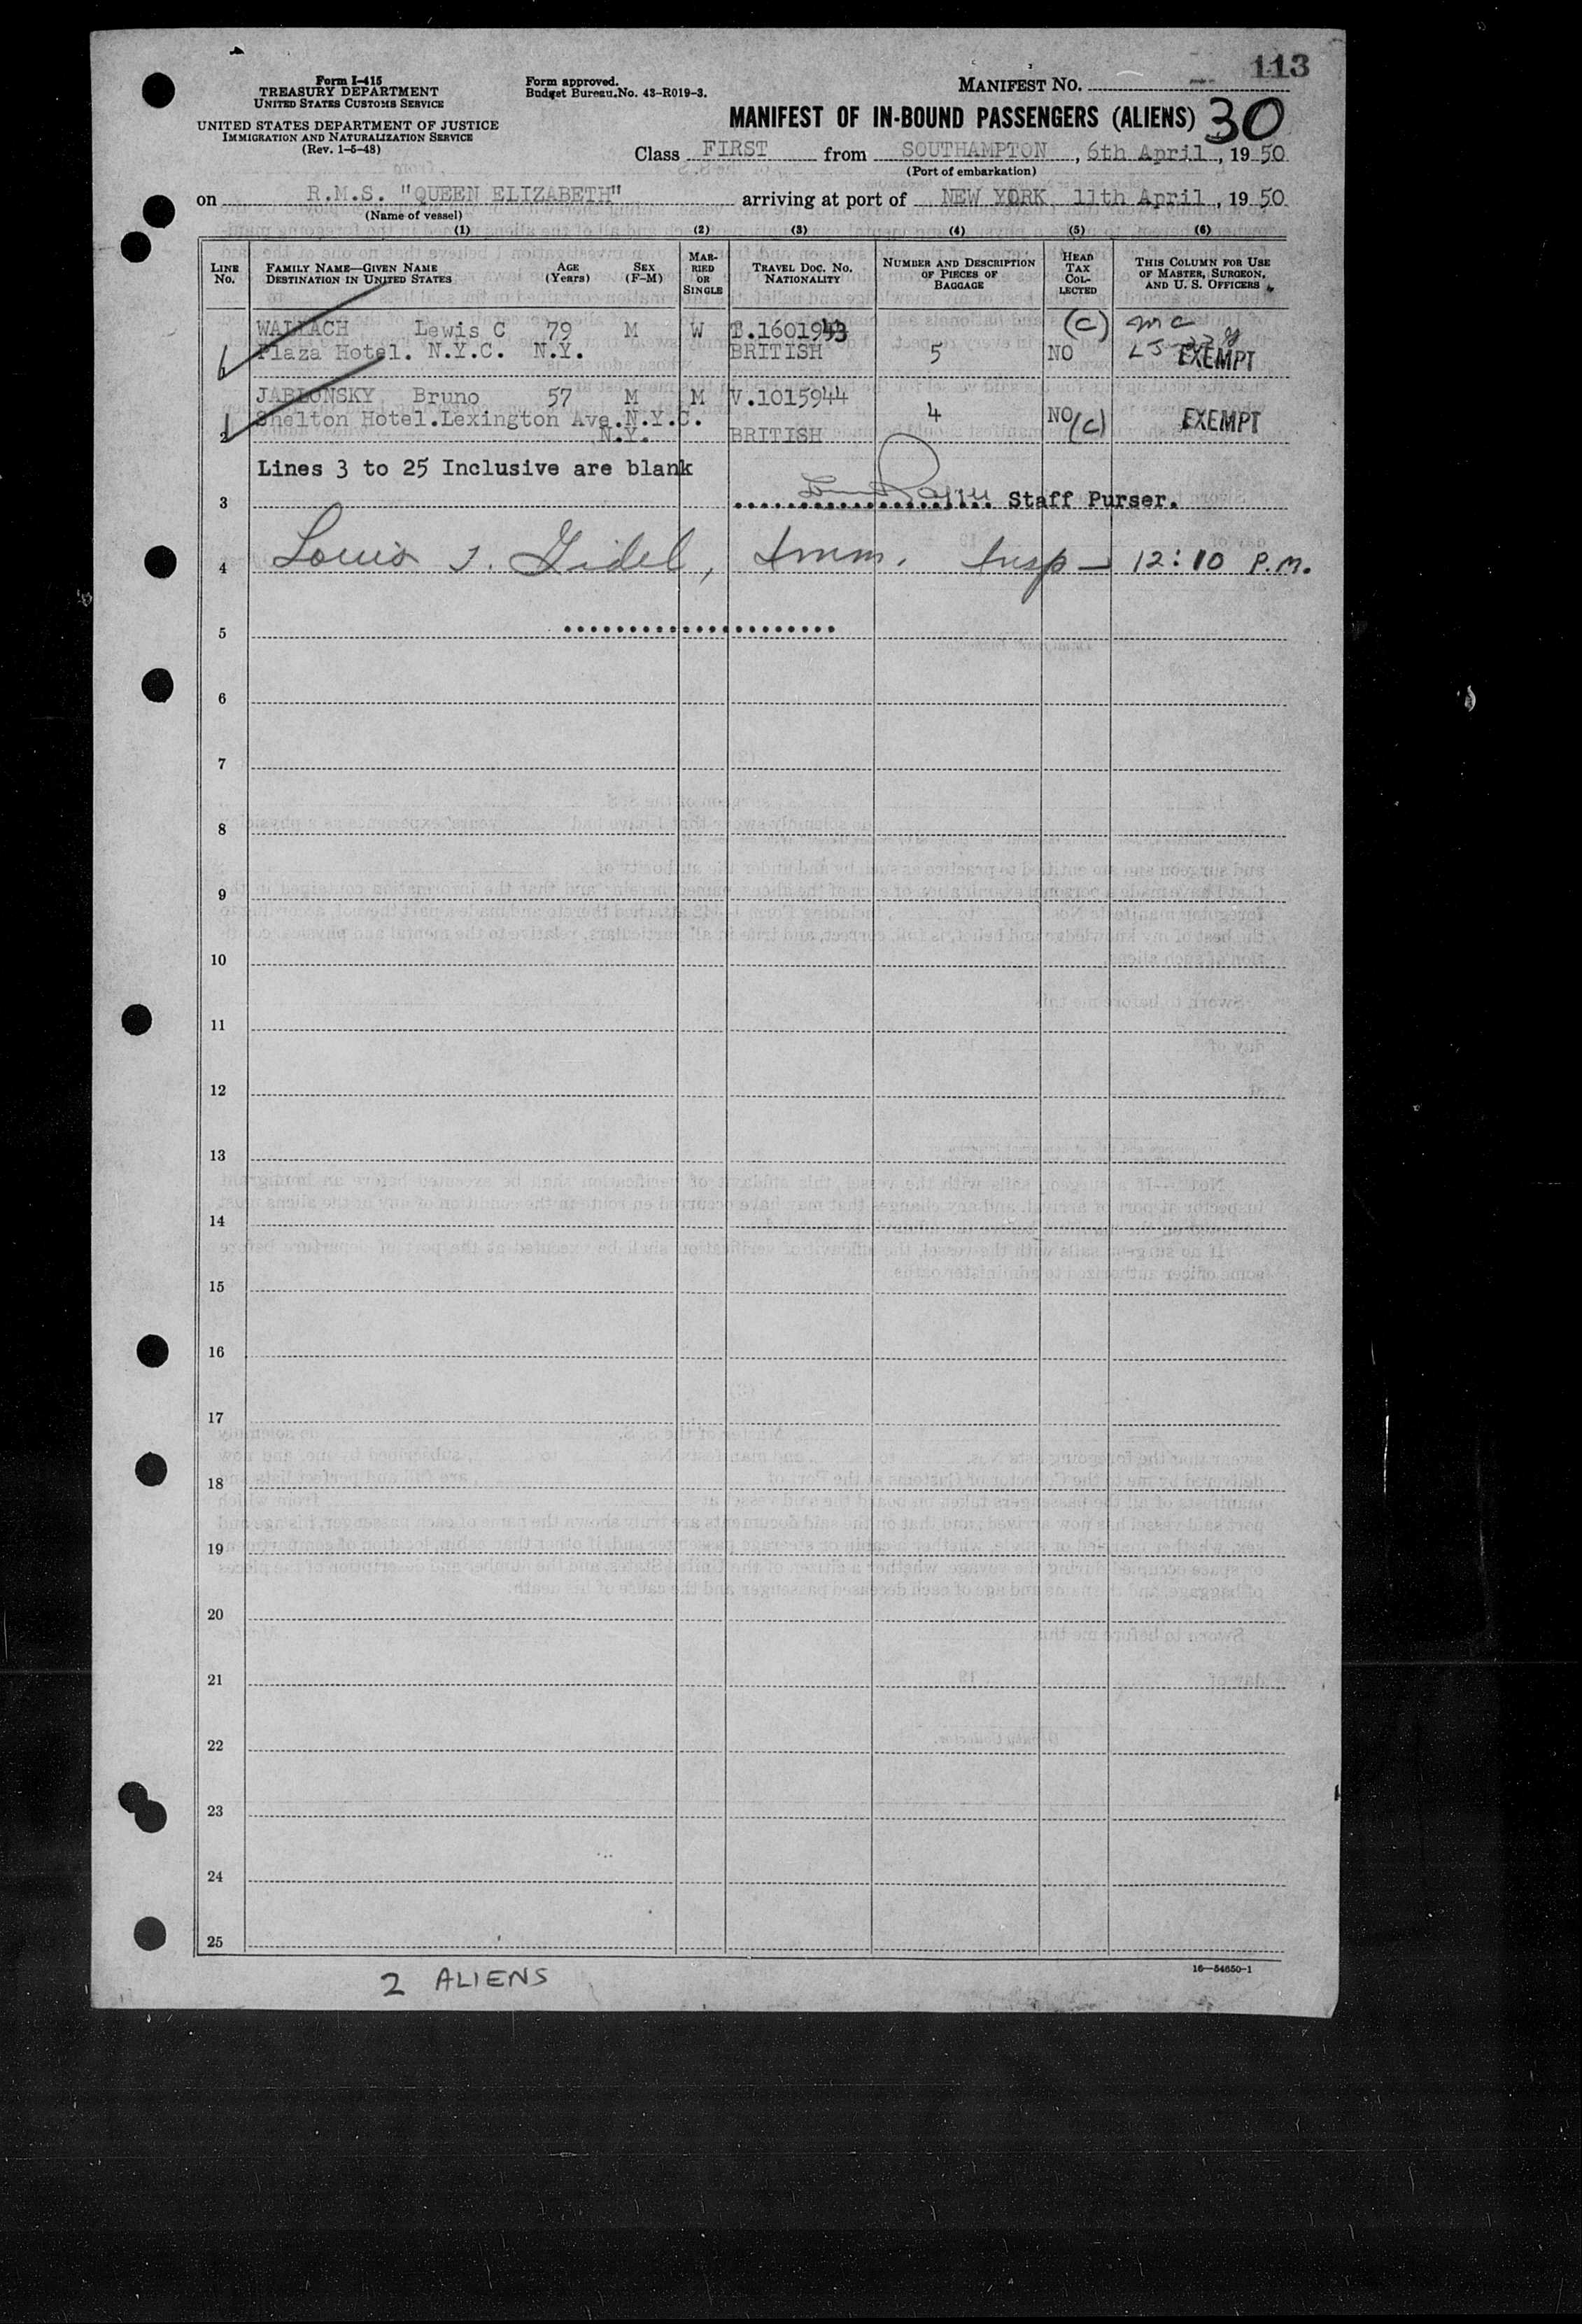 113
Form I-415
TREASURY DEPARTMENT
UNITED STATES CUSTOMS SERVICE
UNITED STATES DEPARTMENT OF JUSTICE
IMMIGRATION AND NATURALIZATION SERVICE
(Rev. 1-5-48)
Form approved.
Budget Bureau No. 43-R019-3.
MANIFEST NO.
MANIFEST OF IN-BOUND PASSENGERS (ALIENS) 30
Class FIRST from SOUTHAMPTON, 6th April, 1950
(Port of embarkation)
on R.M.S. "QUEEN ELIZABETH" arriving at port of NEW YORK 11th April, 1950
(Name of vessel)
(1) (2) (3) (4) (5) (6)
LINE NO. FAMILY NAME—GIVEN NAME DESTINATION IN UNITED STATES AGE (Years) SEX (F-M) MARRIED OR SINGLE TRAVEL DOC. NO. NATIONALITY NUMBER AND DESCRIPTION OF PIECES OF BAGGAGE HEAD TAX COLLECTED THIS COLUMN FOR USE OF MASTER, SURGEON, AND U. S. OFFICERS
WALLACH Lewis C 79 M W (C)
1 Plaza Hotel. N.Y.C. N.Y. BRITISH 5 NO EXEMPT
JABLONSKY Bruno 57 M M V.1015944
Shelton Hotel.Lexington Ave.N.Y.C. 4 NO (C) EXEMPT
2 N.Y. BRITISH
Lines 3 to 25 Inclusive are blank
3 Staff Purser.
4 Louis J. Gidel, Imm. Insp — 12:10 P.M.
5
6
7
8
9
10
11
12
13
14
15
16
17
18
19
20
21
22
23
24
25
16—54650-1
2 ALIENS